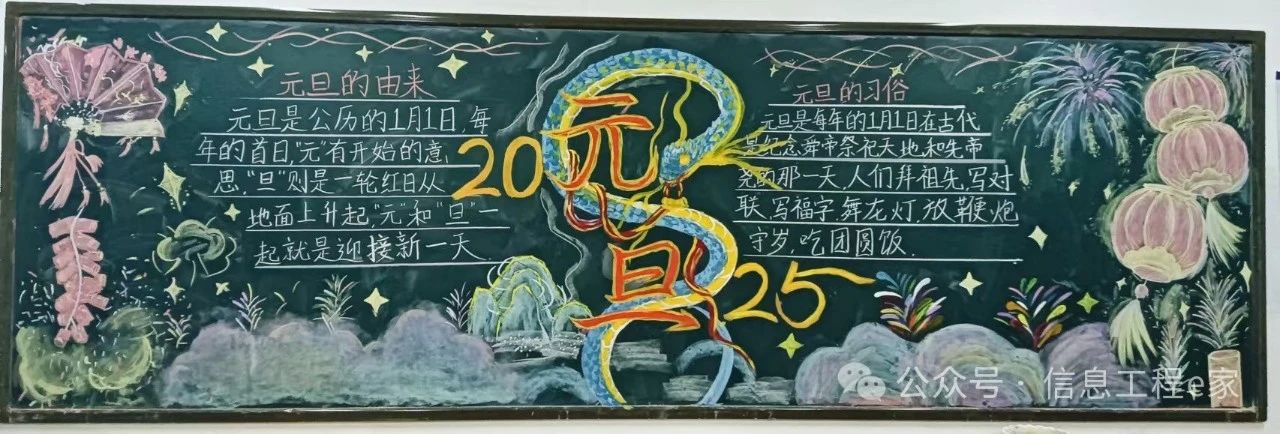 元旦的由来
元旦是公历的1月1日,每
年的首日,"元"有开始的意
思,"旦"则是一轮红日从
地面上升起,"元"和"旦"一
起就是迎接新一天.
2025
元旦
元旦的习俗
元旦是每年的1月1日在古代
是纪念舜帝祭祀天地和先帝
尧的那一天,人们拜祖先,写对
联,写福字,舞龙灯,放鞭炮
守岁,吃团圆饭.
公众号·信息工程e家